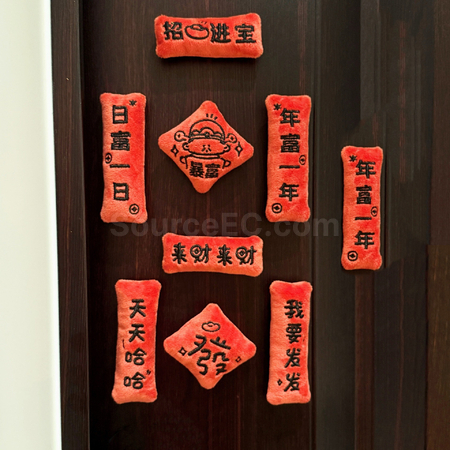 招進宝
日富一日
暴富
年富一年
年富一年
SourceEC.com
来财来财
天天哈哈
發
我要发发